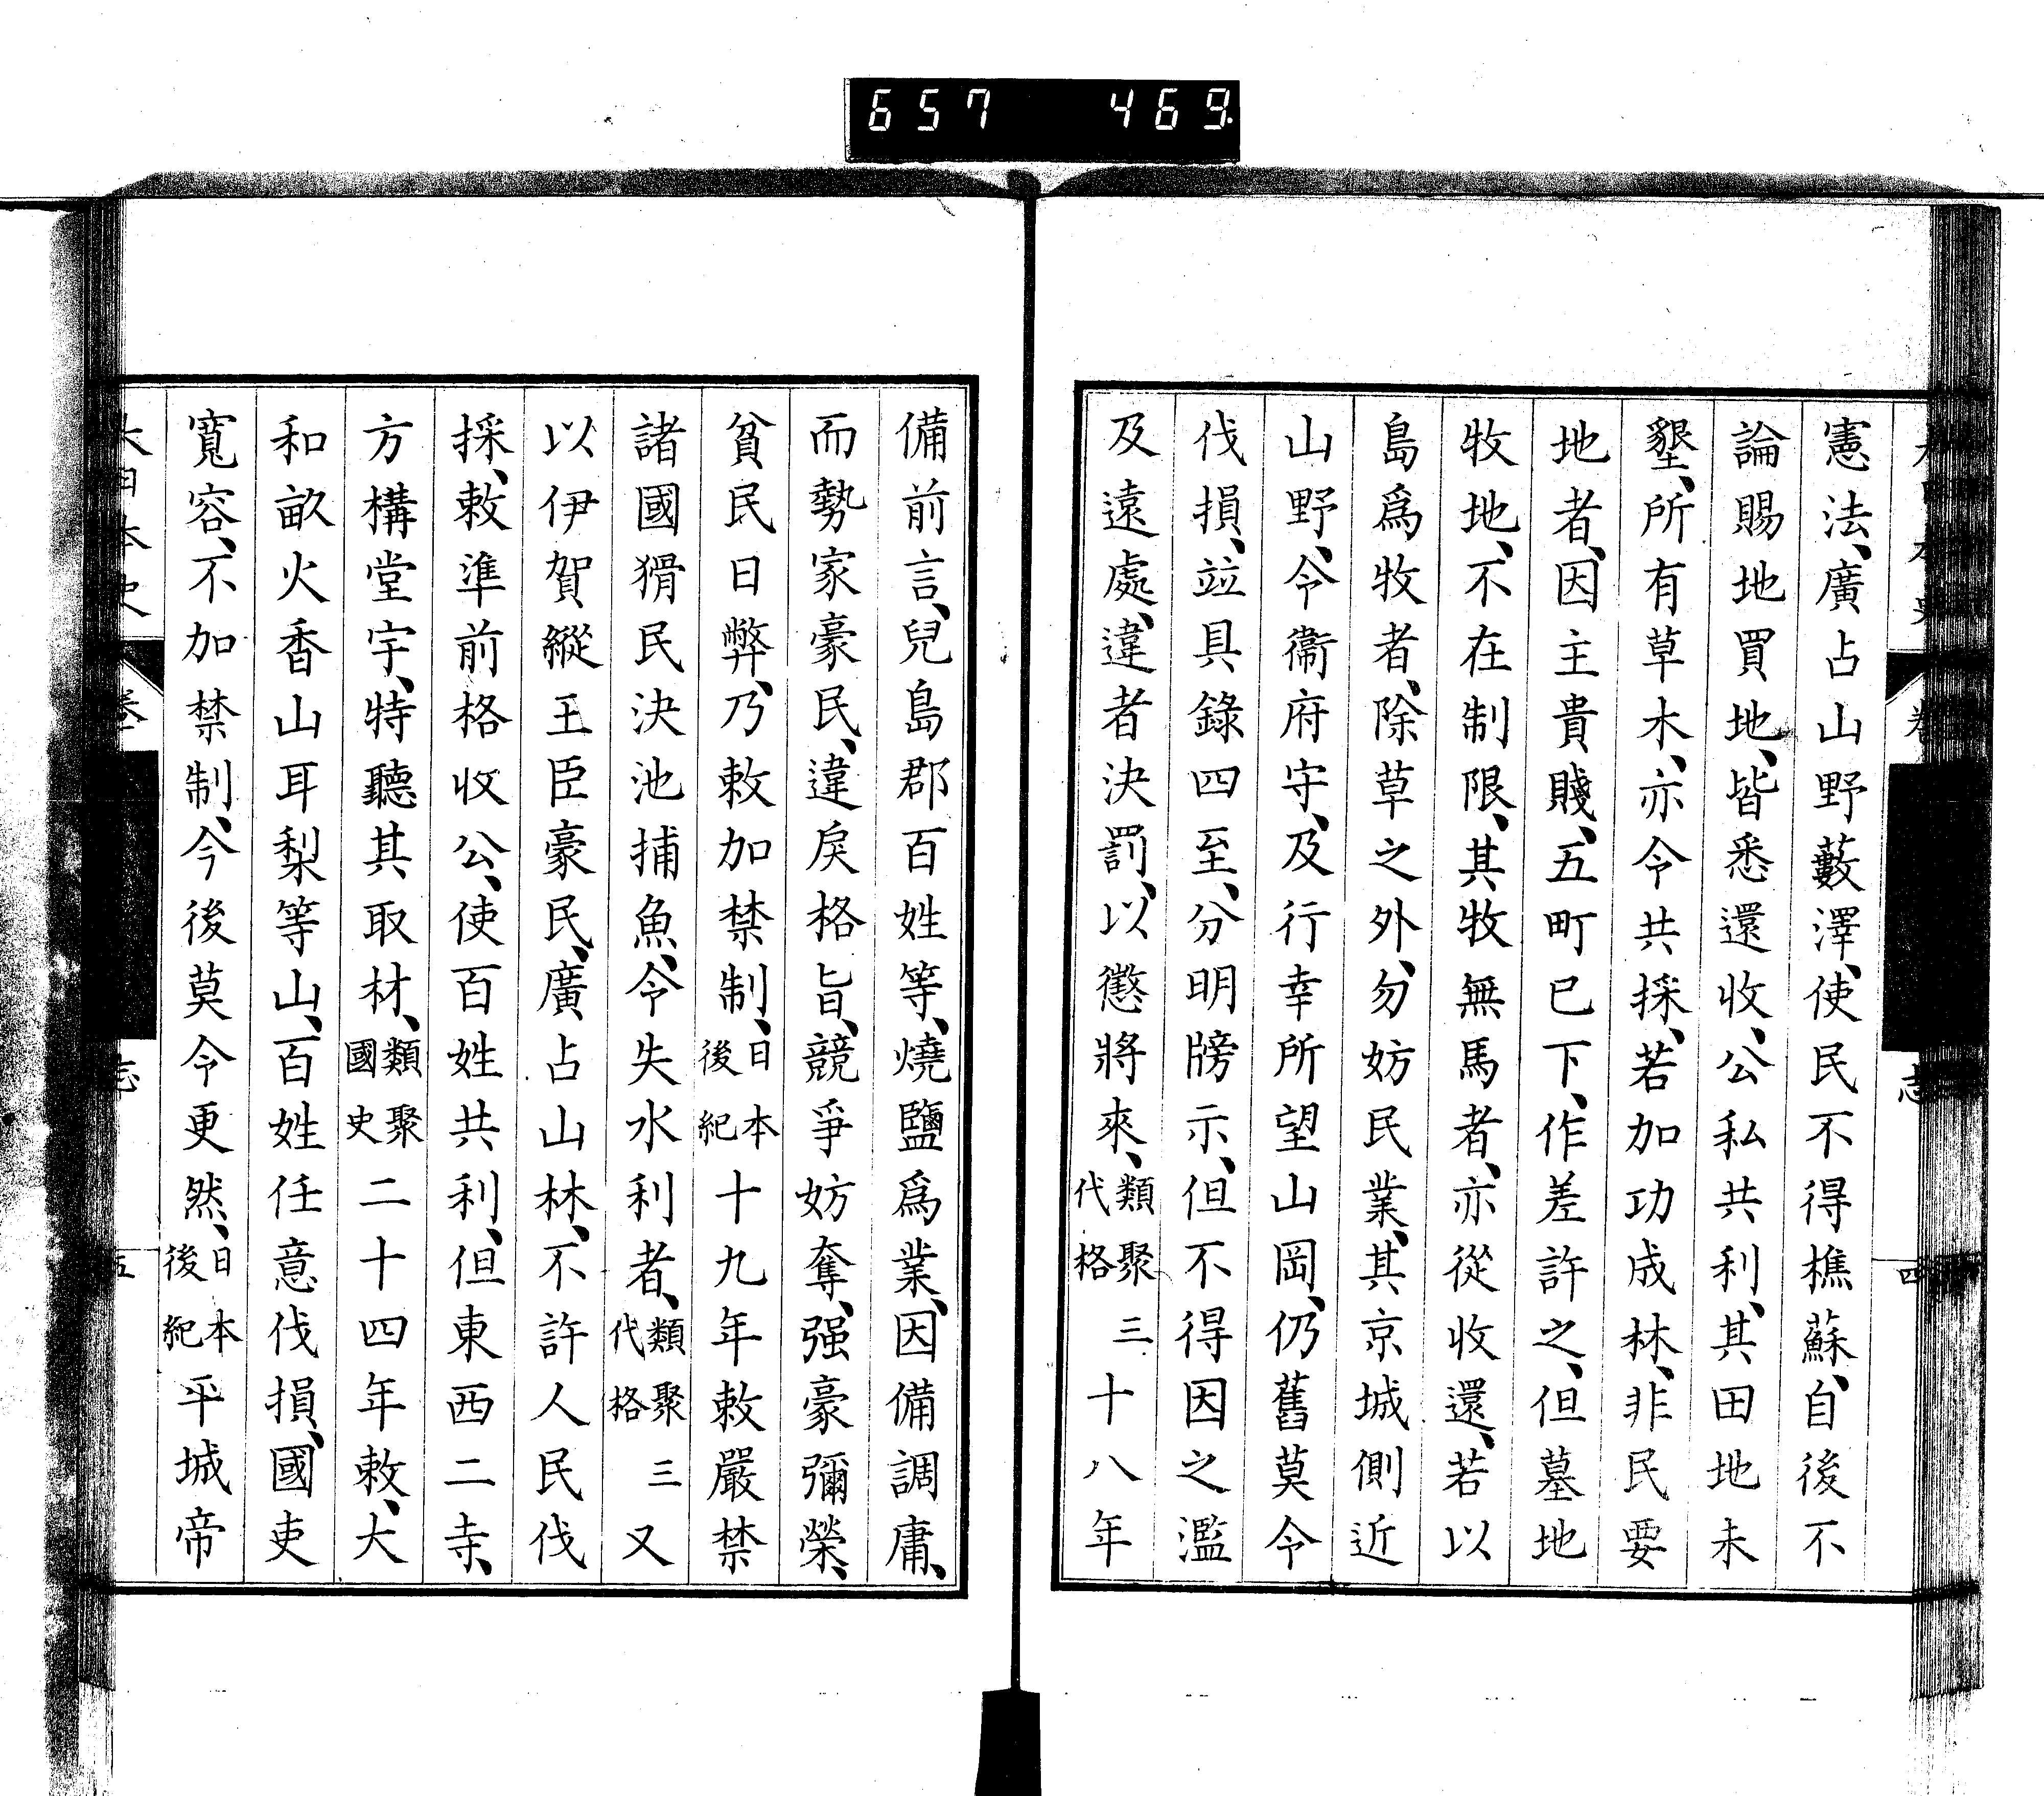 657 469
憲法、廣占山野藪澤、使民不得樵蘇、自後不
論賜地買地、皆悉還收、公私共利、其田地未
墾、所有草木、亦令共採、若加功成林、非民要
地者、因主貴賤、五町已下、作差許之、但墓地
牧地、不在制限、其牧無馬者、亦從收還、若以
島爲牧者、除草之外、勿妨民業、其京城側近
山野、令衞府守、及行幸所望山岡、仍舊莫令
伐損、竝具錄四至、分明牓示、但不得因之濫
及遠處、違者決罰、以懲將來、類聚三代格 三十八年
備前言、兒島郡百姓等、燒鹽爲業、因備調庸、
而勢家豪民、違戾格旨、競爭妨奪、强豪彌榮、
貧民日弊、乃敕加禁制、日本後紀 十九年敕嚴禁
諸國猾民決池捕魚、令失水利者、類聚三代格 又
以伊賀縱王臣豪民、廣占山林、不許人民伐
採、敕準前格收公、使百姓共利、但東西二寺、
方構堂宇、特聽其取材、類聚國史 二十四年敕、大
和畝火香山耳梨等山、百姓任意伐損、國吏
寬容、不加禁制、今後莫令更然、日本後紀 平城帝
大日本史 卷 志 五